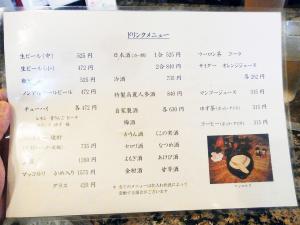 ドリンクメニュー
生ビール(中) 525円
生ビール(小) 472円
472円
ノンアルコールビール 472円
チューハイ 各472円
735円
525円
マッコルリ かめ入り 1575円
グラス 420円
日本酒 1合 525円
2合 840円
冷酒 735円
特製高麗人参酒 840円
自家製酒 各630円
梅酒
かりん酒 くこの実酒
セロリ酒 なつめ酒
よもぎ酒 あけび酒
金柑酒 甘草酒
ウーロン茶 コーラ
サイダー オレンジジュース
各262円
マンゴージュース 315円
ゆず茶 315円
コーヒー 315円
マッコルリ